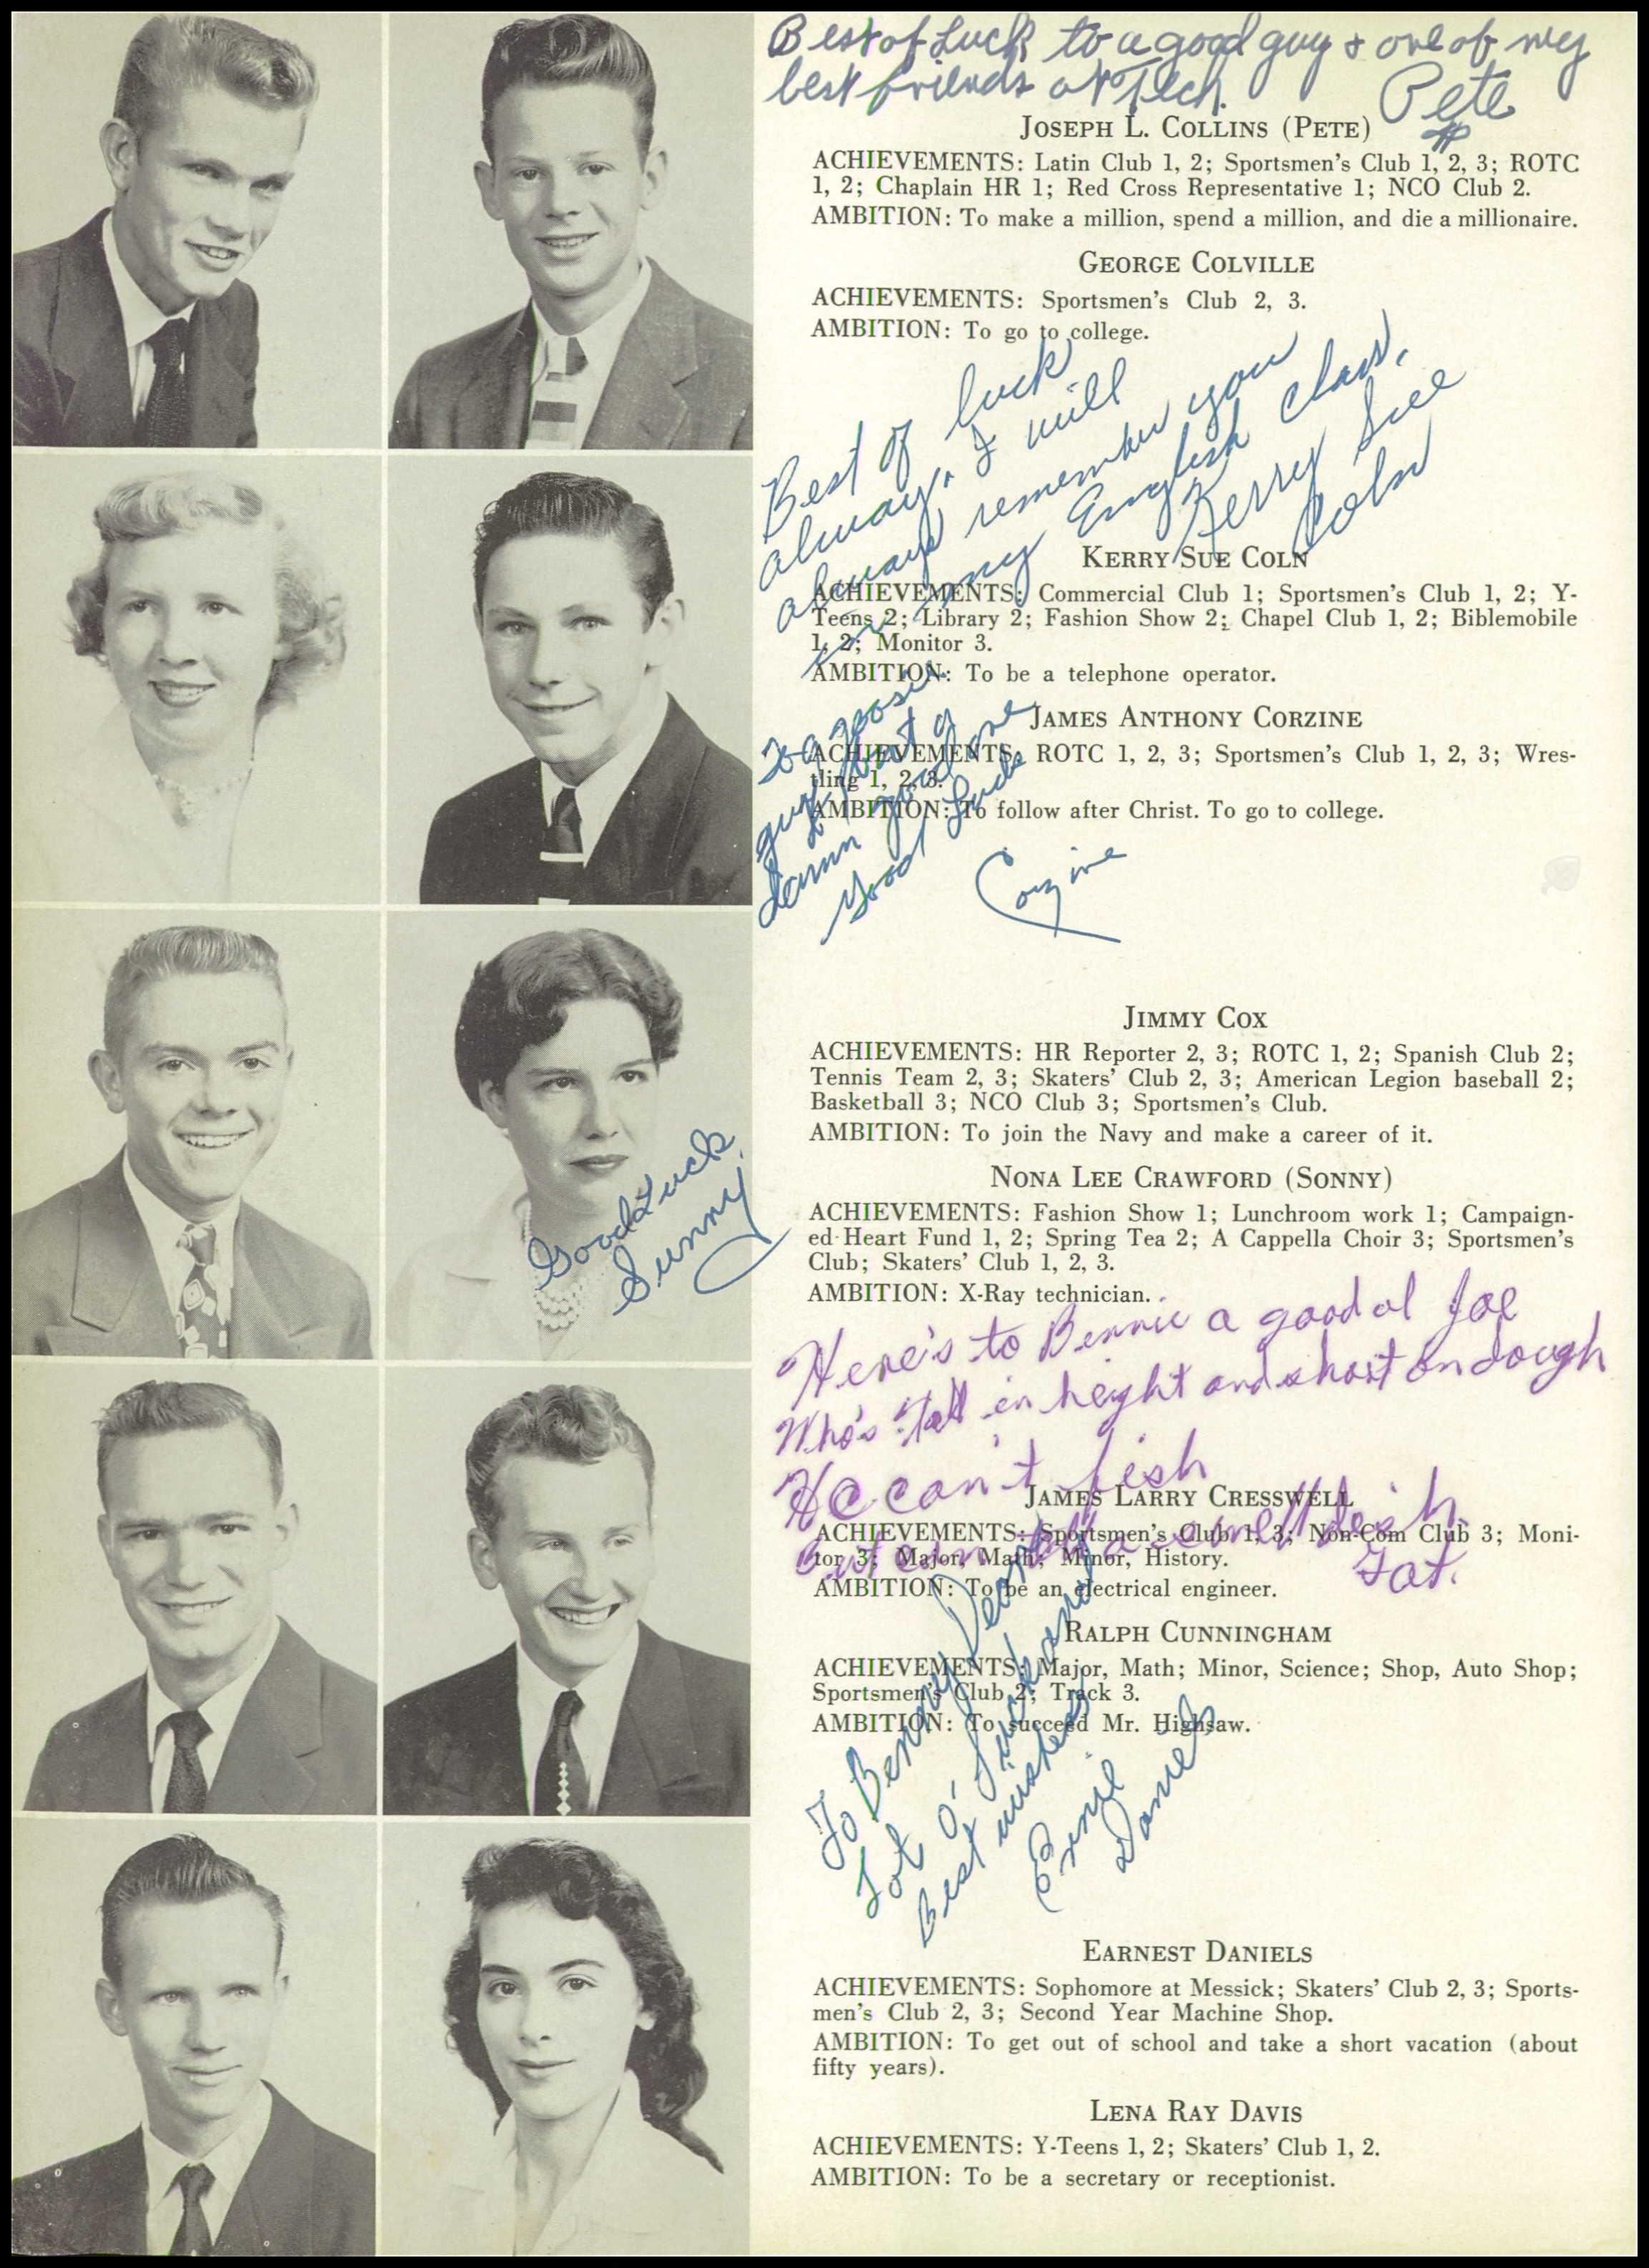 Best of Luck to a good guy & one of my
best friends at Tech.
Pete
JOSEPH L. COLLINS (PETE)
ACHIEVEMENTS: Latin Club 1, 2; Sportsmen's Club 1, 2, 3; ROTC
1, 2; Chaplain HR 1; Red Cross Representative 1; NCO Club 2.
AMBITION: To make a million, spend a million, and die a millionaire.
GEORGE COLVILLE
ACHIEVEMENTS: Sportsmen's Club 2, 3.
AMBITION: To go to college.
Best of luck
always. I will
always remember you
in my English class.
Kerry Sue
Coln
KERRY SUE COLN
ACHIEVEMENTS: Commercial Club 1; Sportsmen's Club 1, 2; Y-
Teens 2; Library 2; Fashion Show 2; Chapel Club 1, 2; Biblemobile
1, 2; Monitor 3.
AMBITION: To be a telephone operator.
JAMES ANTHONY CORZINE
ACHIEVEMENTS: ROTC 1, 2, 3; Sportsmen's Club 1, 2, 3; Wres-
tling 1, 2, 3.
AMBITION: To follow after Christ. To go to college.
To a
guy but a
damn good one
Good Luck
Corzine
JIMMY COX
ACHIEVEMENTS: HR Reporter 2, 3; ROTC 1, 2; Spanish Club 2;
Tennis Team 2, 3; Skaters' Club 2, 3; American Legion baseball 2;
Basketball 3; NCO Club 3; Sportsmen's Club.
AMBITION: To join the Navy and make a career of it.
Good Luck
Sunny
NONA LEE CRAWFORD (SONNY)
ACHIEVEMENTS: Fashion Show 1; Lunchroom work 1; Campaign-
ed Heart Fund 1, 2; Spring Tea 2; A Cappella Choir 3; Sportsmen's
Club; Skaters' Club 1, 2, 3.
AMBITION: X-Ray technician.
Here's to Bennie a good ol Joe
Who's tall in height and short on dough
He can't fish
But can tell a
Fat.
JAMES LARRY CRESSWELL
ACHIEVEMENTS: Sportsmen's Club 1, 3; Non-Com Club 3; Moni-
tor 3; Major, Math; Minor, History.
AMBITION: To be an electrical engineer.
RALPH CUNNINGHAM
ACHIEVEMENTS: Major, Math; Minor, Science; Shop, Auto Shop;
Sportsmen's Club 2; Track 3.
AMBITION: To succeed Mr. Highsaw.
To Benny Dean
Lot O' Luck and
Best wishes
Ernie
Daniels
EARNEST DANIELS
ACHIEVEMENTS: Sophomore at Messick; Skaters' Club 2, 3; Sports-
men's Club 2, 3; Second Year Machine Shop.
AMBITION: To get out of school and take a short vacation (about
fifty years).
LENA RAY DAVIS
ACHIEVEMENTS: Y-Teens 1, 2; Skaters' Club 1, 2.
AMBITION: To be a secretary or receptionist.